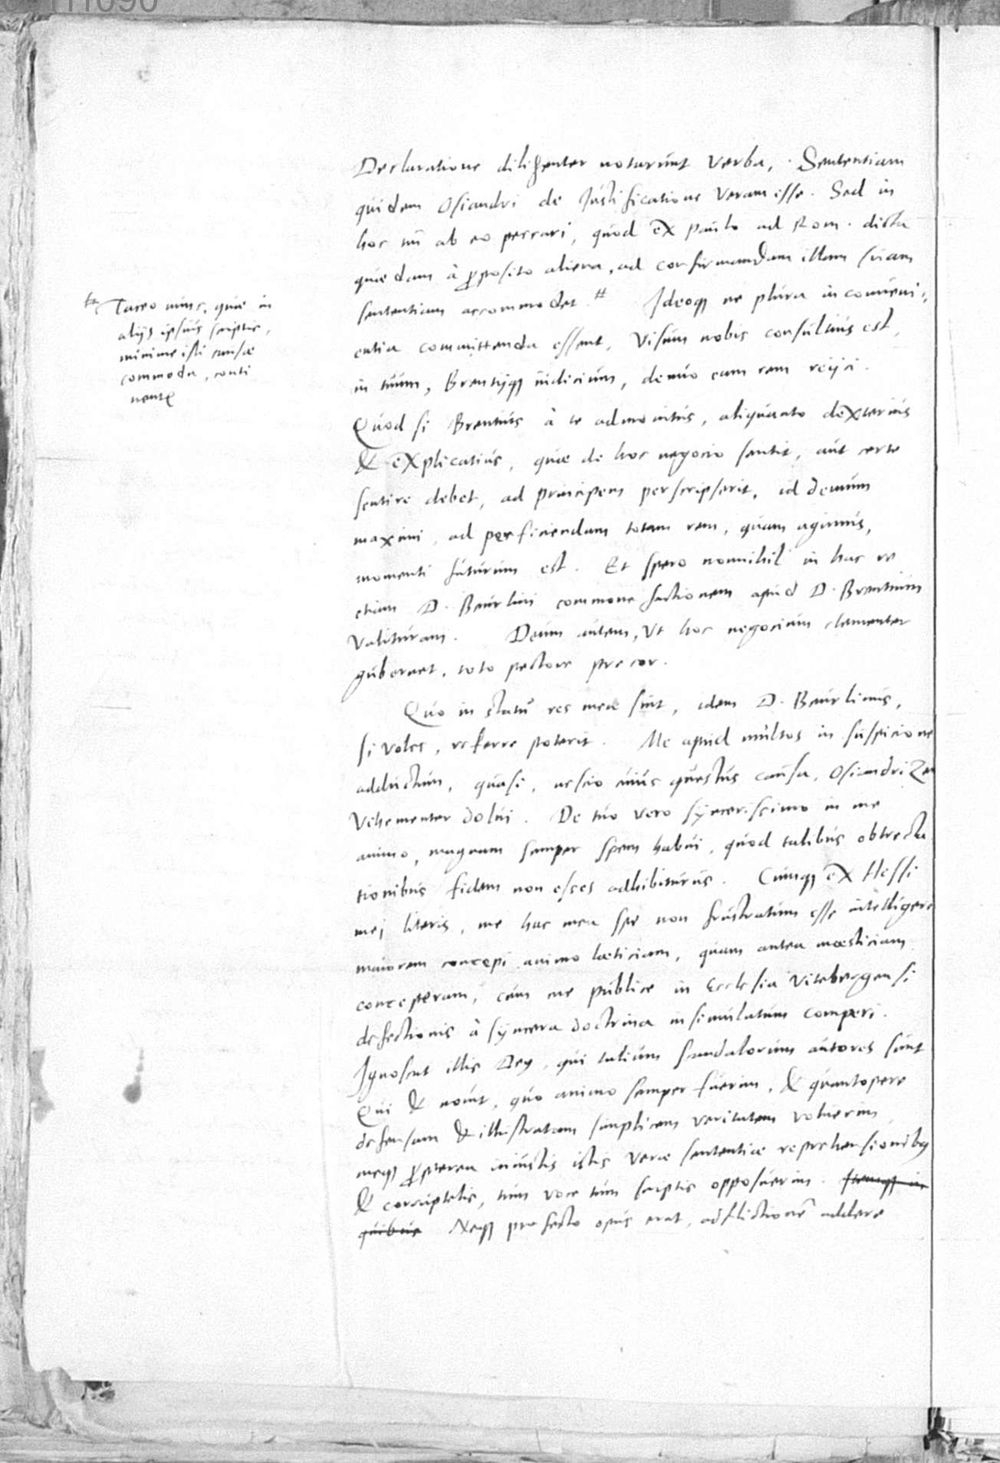 111090
Declaratione diligenter notarunt verba, Sententiam
quidem Osiandri de Iustificatione veram esse. Sed in
hoc tñ ab eo peccari, quod ex Paulo ad Rom. dicta
quædam à proposito aliena, ad confirmandam illam suam
sententiam accommodet. # Ideoq ne plura inconueni-
entia committenda essent, visum nobis consultius est,
in tuum, Brentijq iudicium, denuo eam rem reijci.
Quod si Brentius à te admonitus, aliquanto dexterius
& explicatius, quæ de hoc negocio sentit, aut certe
sentire debet, ad principem perscripserit, id demum
maximi, ad perficiendam totam rem, quam agimus,
momenti futurum est. Et spero nonnihil in hac re
etiam D. Beurlini commonefactionem apud D. Brentium
valituram. Deum autem, vt hoc negocium clementer
gubernet, toto pectore precor.
Quo in statu res meæ sint, idem D. Beurlinus,
si voles, referre poterit. Me apud multos in suspicione
adductum, quasi, nescio cuius quæstus causa, Osiandrizem
vehementer dolui. De tuo vero syncerissimo in me
animo, magnam semper spem habui, quod talibus obtrecta
tionibus fidem non esses adhibiturus. Cumq ex Hessi
mej literis, me hac mea spe non frustratum esse intelligere
maiorem concepi animo læticiam, quam antea mœsticiam
conceperam, cum me publice in Ecclesia Vitebergensi
defectionis à syncera doctrina insimulatum comperi.
Ignoscat illis Deus, qui talium scandalorum autores sunt
Qui & nouit, quo animo semper fuerim, & quantopere
defensam & illustratam simplicem veritatem voluerim,
meq propterea iniustis istis veræ sententiæ reprehensionibus
& corruptelis, tum voce tum scriptis opposuerim. Itemq in
quibus Neq profecto opus erat, adflictionẽ addere
# Taceo nunc, quæ in
alijs ipsius scriptis,
minime isti causæ
commoda, conti
nentur